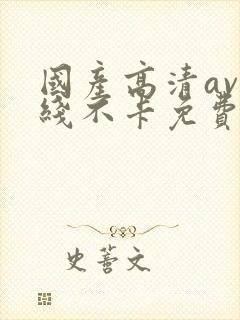 國産高清av
綫不卡免費
史蒼文